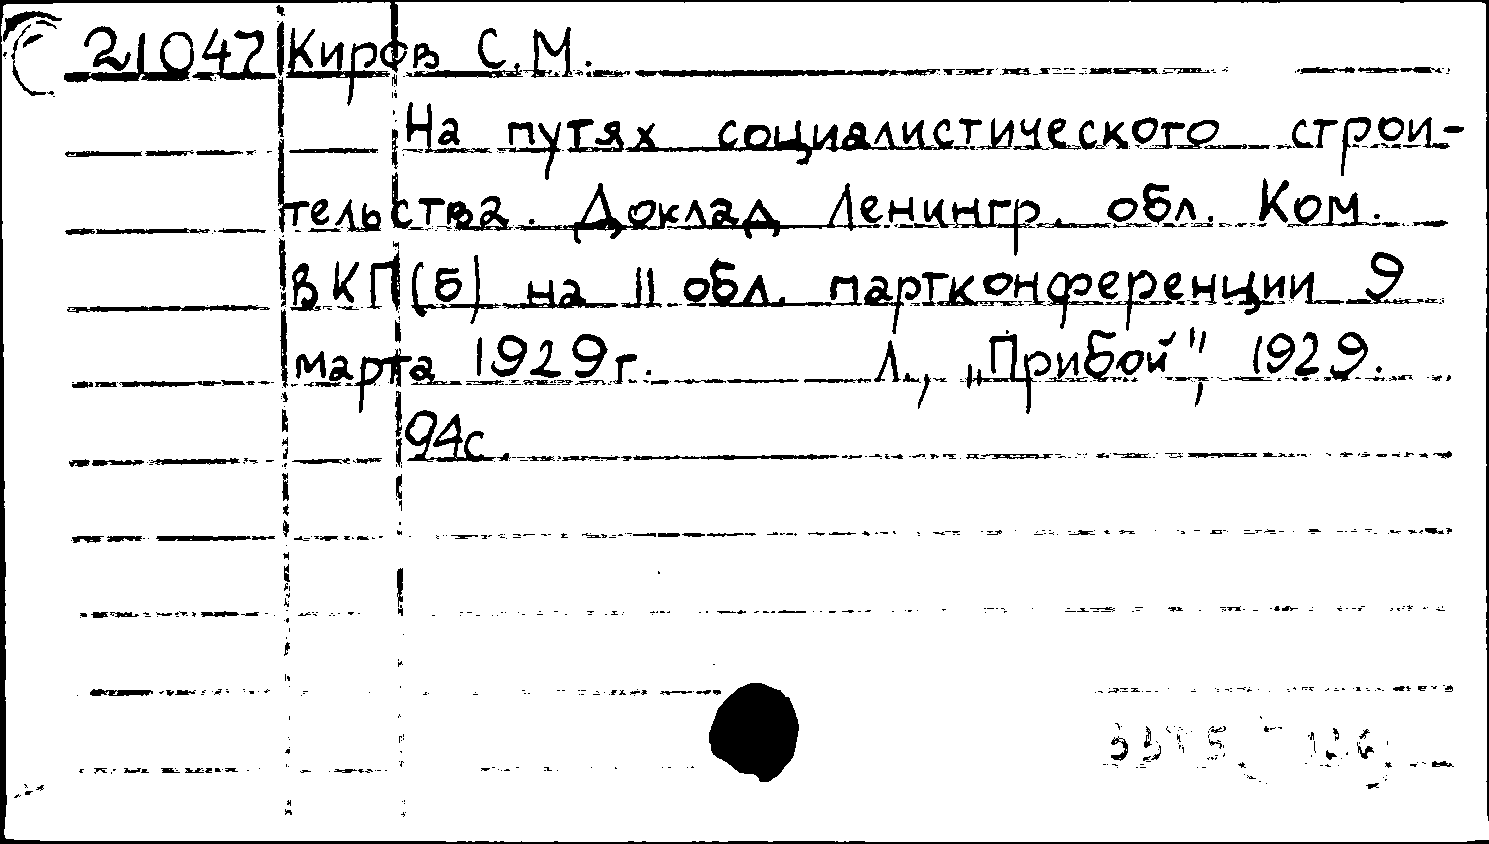 21047 Киров С.М.
На путях социалистического строи-
тельства. Доклад Ленингр. обл. Ком.
ВКП(б) на II обл. партконференции 9
марта 1929г. Л., „Прибой", 1929.
94с.